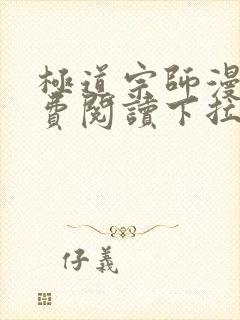 極道宗師漫
費閱讀下拉
仔義